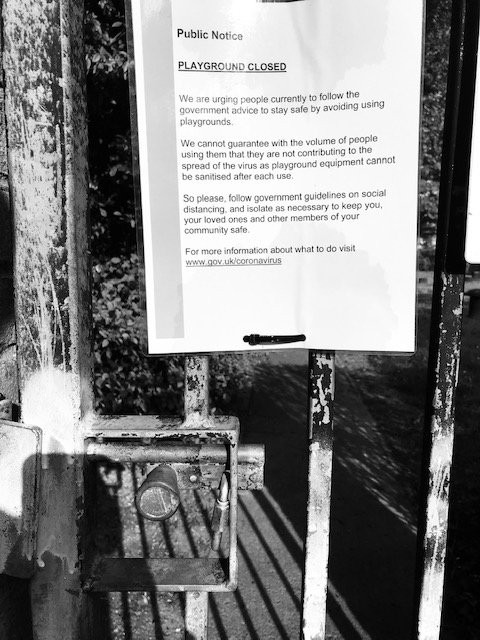 Public Notice
PLAYGROUND CLOSED
We are urging people currently to follow the
government advice to stay safe by avoiding using
playgrounds.
We cannot guarantee with the volume of people
using them that they are not contributing to the
spread of the virus as playground equipment cannot
be sanitised after each use.
So please, follow government guidelines on social
distancing, and isolate as necessary to keep you,
your loved ones and other members of your
community safe.
For more information about what to do visit
www.gov.uk/coronavirus